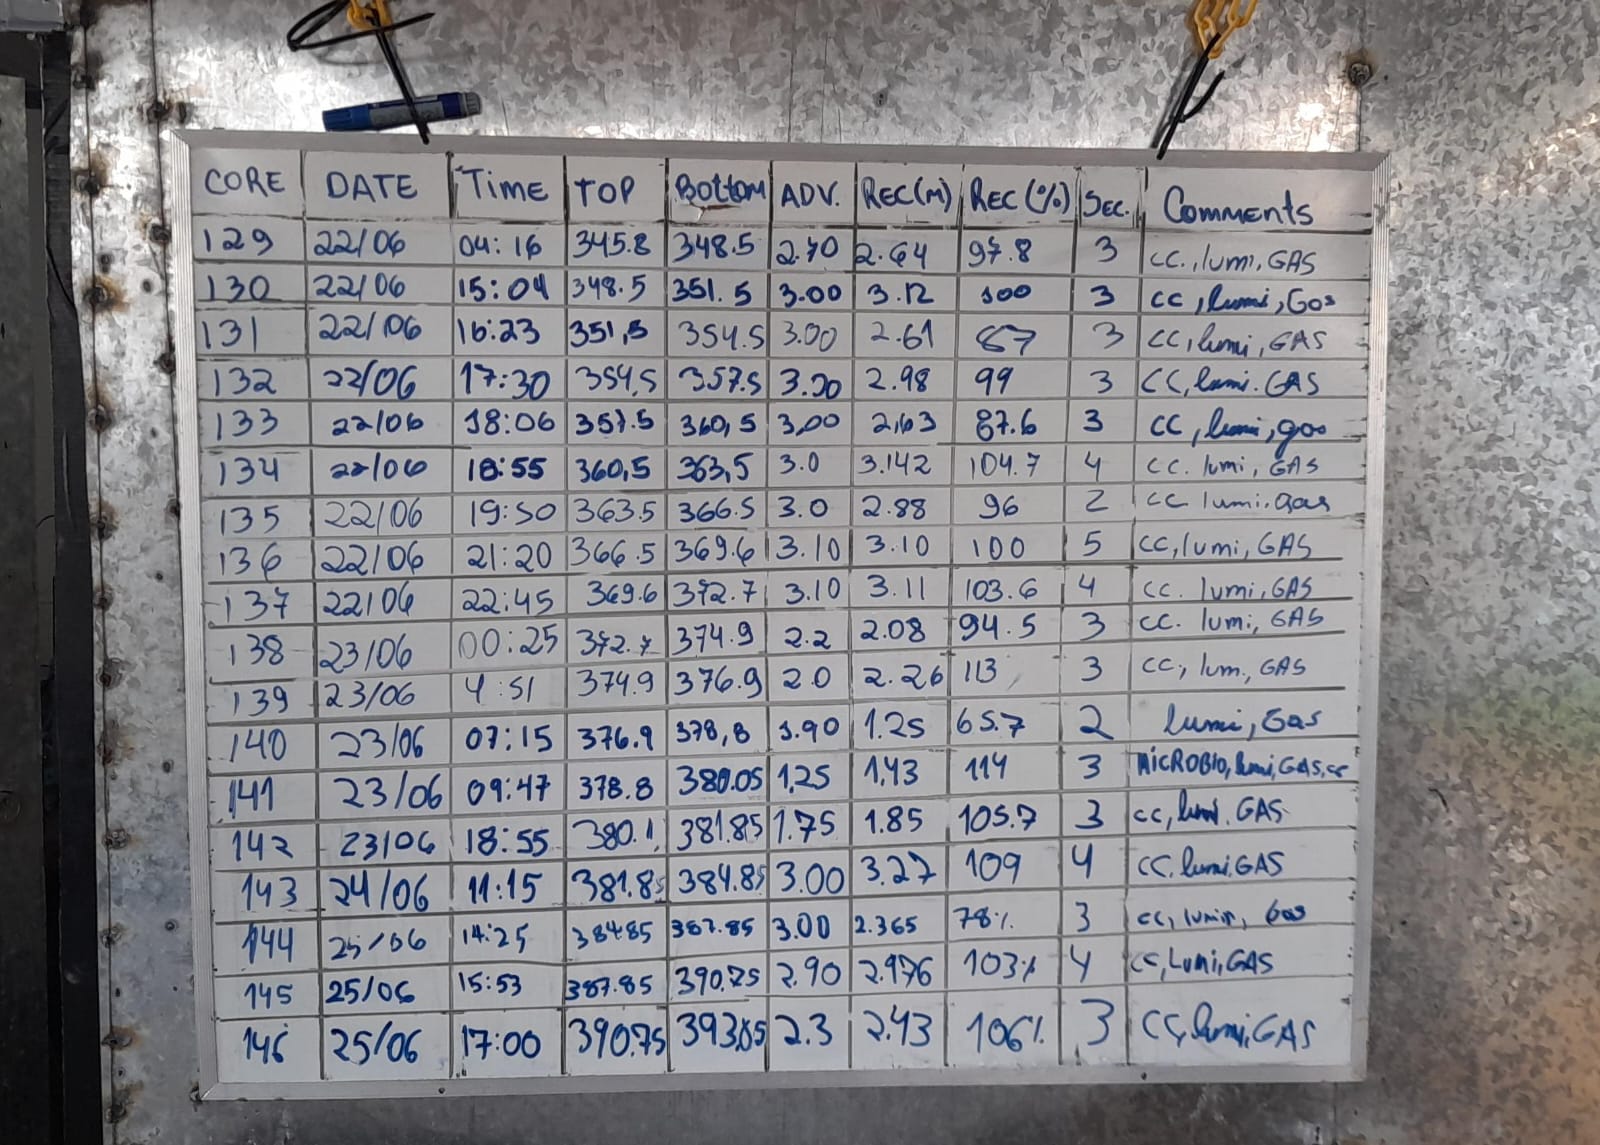 CORE DATE Time TOP Bottom ADV. REC(M) REC(%) SEC. Comments
129 22/06 04:16 345.8 348.5 2.70 2.64 97.8 3 CC., lumi, GAS
130 22/06 15:04 348.5 351.5 3.00 3.12 100 3 CC, lumi, Gas
131 22/06 16:23 351,5 354.5 3.00 2.61 87 3 CC, lumi, GAS
132 22/06 17:30 354,5 357.5 3.00 2.98 99 3 CC, lumi. GAS
133 22/06 18:06 357.5 360,5 3,00 2,63 87.6 3 CC, lumi, gas
134 22/06 18:55 360,5 363,5 3.0 3.142 104.7 4 CC. lumi, GAS
135 22/06 19:50 363.5 366.5 3.0 2.88 96 2 CC lumi. Gas
136 22/06 21:20 366.5 369.6 3.10 3.10 100 5 CC, lumi, GAS
137 22/06 22:45 369.6 372.7 3.10 3.11 103.6 4 CC. lumi, GAS
138 23/06 00:25 372.7 374.9 2.2 2.08 94.5 3 CC. lumi, GAS
139 23/06 4:51 374.9 376.9 2.0 2.26 113 3 CC, lum., GAS
140 23/06 07:15 376.9 378,8 1.90 1.25 65.7 2 lumi, Gas
141 23/06 09:47 378.8 380.05 1,25 1,43 114 3 MICROBIO, lumi, GAS, cc
142 23/06 18:55 380.1 381.85 1.75 1.85 105.7 3 CC, lumi. GAS
143 24/06 11:15 381.85 384.85 3.00 3.27 109 4 CC. lumi. GAS
144 25/06 14:25 384.85 387.85 3.00 2.365 78% 3 CC, lumin, Gas
145 25/06 15:53 387.85 390.75 2.90 2.976 103% 4 CC, Lumi, GAS
146 25/06 17:00 390.75 2.3 2.43 106% 3 CC, lumi, GAS